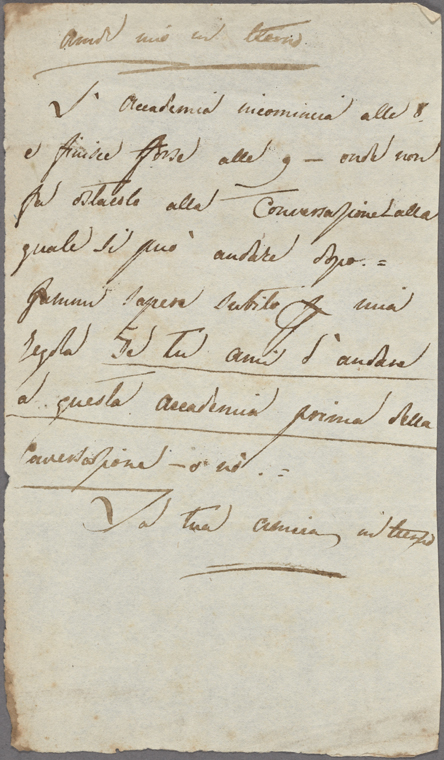 Amor mio in eterno
L'Accademia incomincia alle 8.
e finisce forse alle 9 – onde non
fa ostacolo alla Conversazione alla
quale si può andare dopo. =
Fammi sapere subito p mia
regola Se tu ami d'andare
a questa accademia prima della
Conversazione – o nò. =
La tua amica in eterno